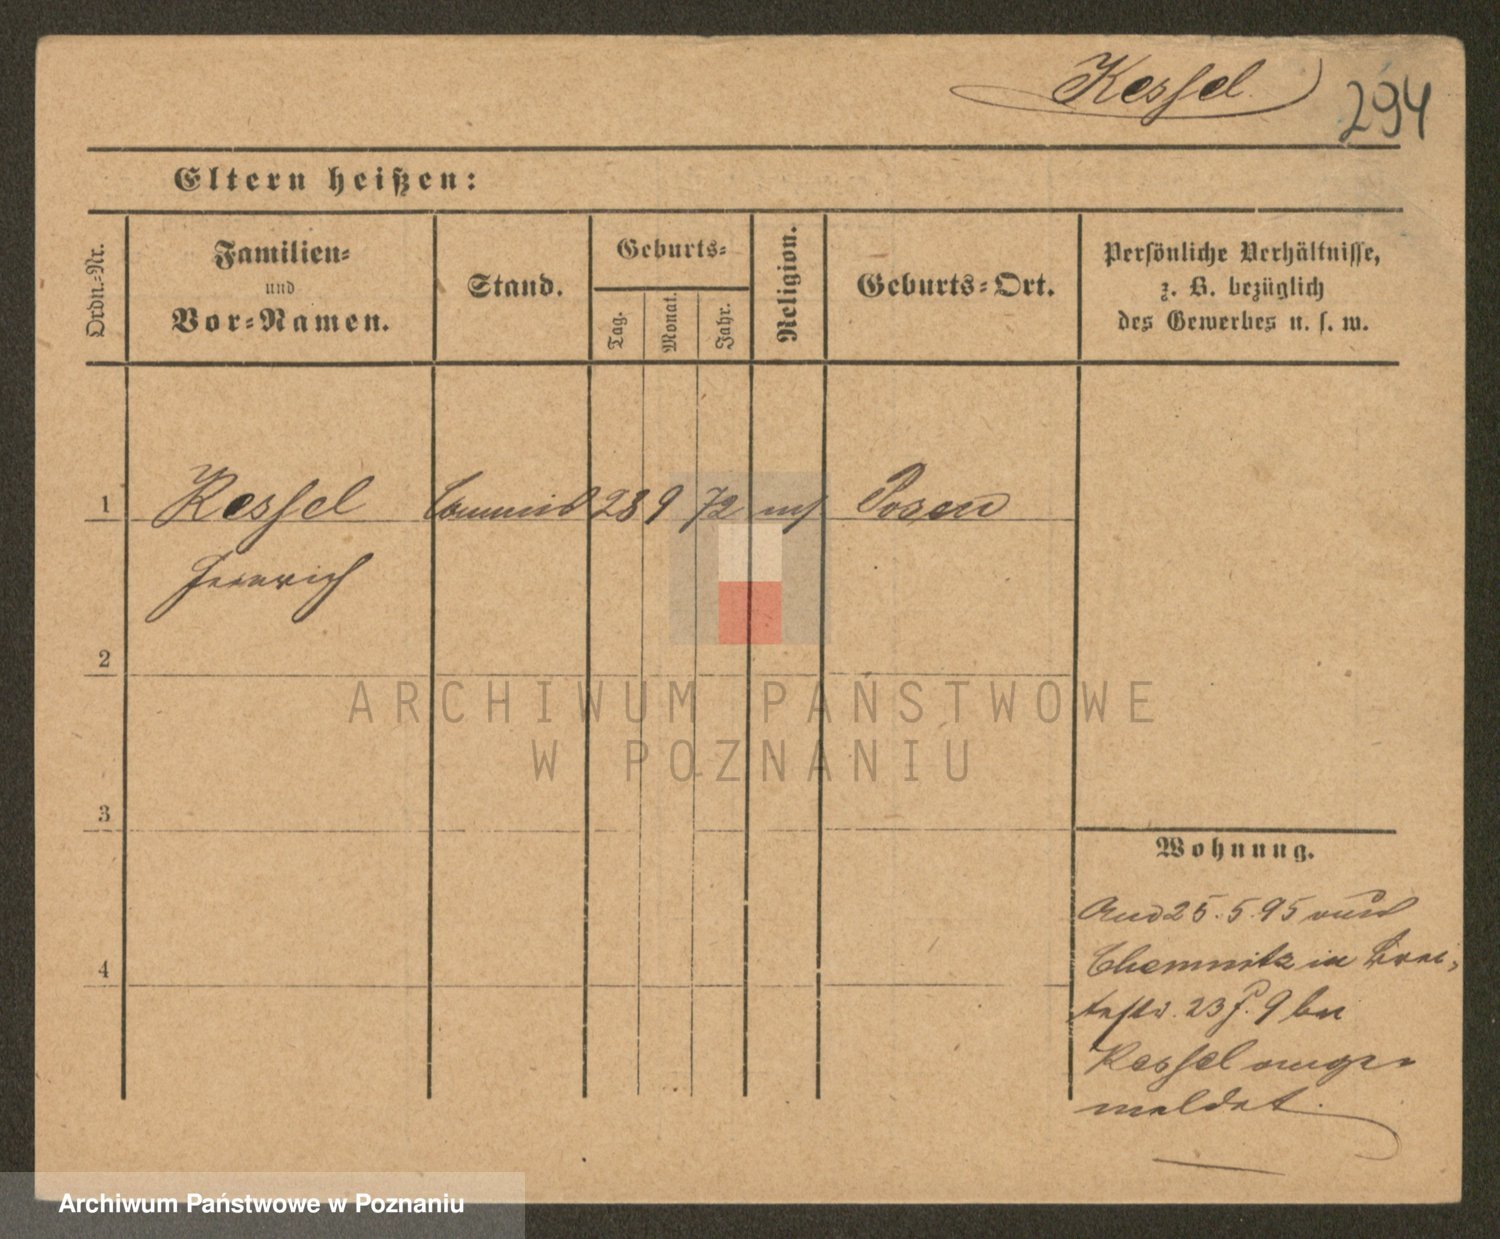 Kessel
294
Eltern heißen:
Ordn.-Nr.
Familien-
und
Vor-Namen.
Stand.
Geburts-
Tag.
Monat.
Jahr.
Religion.
Geburts-Ort.
Persönliche Verhältnisse,
z. B. bezüglich
des Gewerbes u. s. w.
1 Kessel Commis 28 9 72 mos Posen
Heinrich
2
ARCHIWUM PAŃSTWOWE
W POZNANIU
3
Wohnung.
25.5.95
4
Chemnitz in
23 9 bei
Kessel ange
meldet.
Archiwum Państwowe w Poznaniu